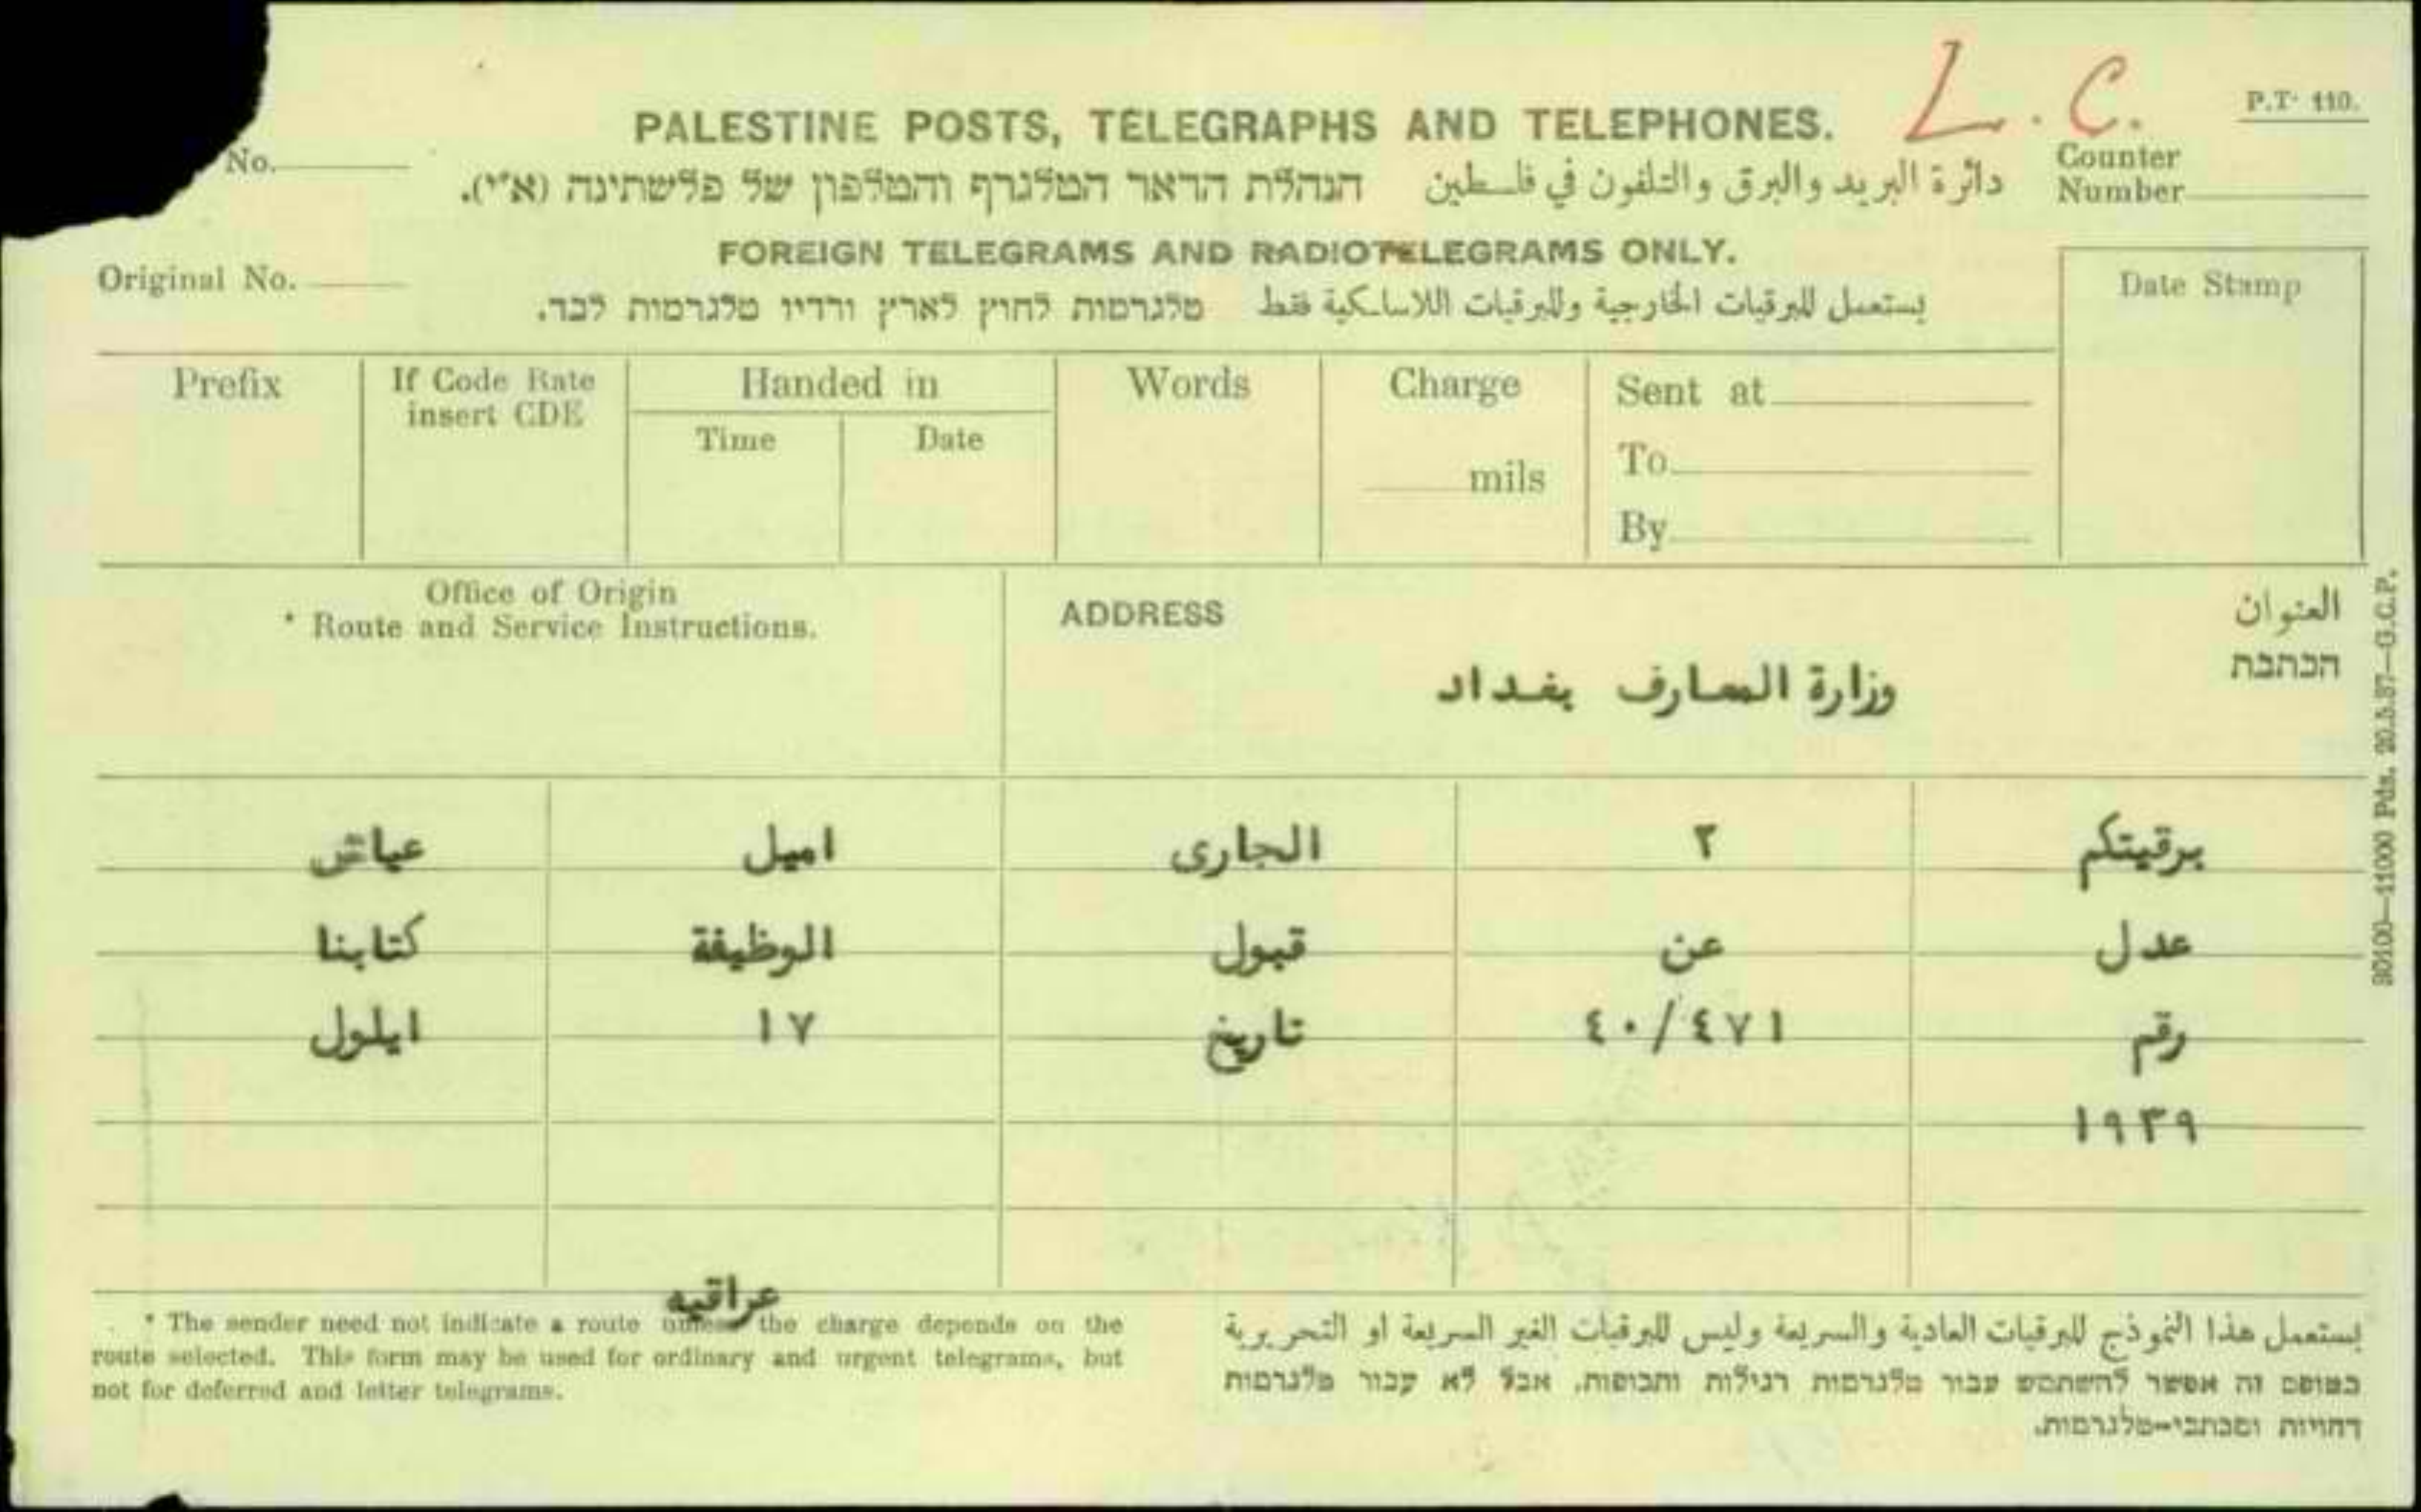 L. C.
P.T. 110.
PALESTINE POSTS, TELEGRAPHS AND TELEPHONES.
No.
دائرة البريد والبرق والتلفون في فلسطين הנהלת הדאר הטלגרף והטלפון של פלשתינה (א״י).
Counter Number
FOREIGN TELEGRAMS AND RADIOTELEGRAMS ONLY.
Original No.
يستعمل للبرقيات الخارجية وللبرقيات اللاسلكية فقط טלגרמות לחוץ לארץ ורדיו טלגרמות לבד.
Date Stamp
Prefix
If Code Rate insert CDE
Handed in
Time Date
Words
Charge
mils
Sent at
To
By
Office of Origin
* Route and Service Instructions.
ADDRESS
العنوان
הכתבת
وزارة المعارف بغداد
برقيتكم ٢ الجارى اميل عياش
عدل عن قبول الوظيفة كتابنا
رقم ٤٠/٤٧١ تاريخ ١٧ ايلول
١٩٣٩
عراقيه
* The sender need not indicate a route unless the charge depends on the
route selected. This form may be used for ordinary and urgent telegrams, but
not for deferred and letter telegrams.
يستعمل هذا النموذج للبرقيات العادية والسريعة وليس للبرقيات الغير السريعة او التحريرية
בטופס זה אפשר להשתמש עבור טלגרמות רגילות ותכופות, אבל לא עבור טלגרמות
דחויות ומכתבי-טלגרמות.
30100—11000 Pds. 20.5.37—G.C.P.